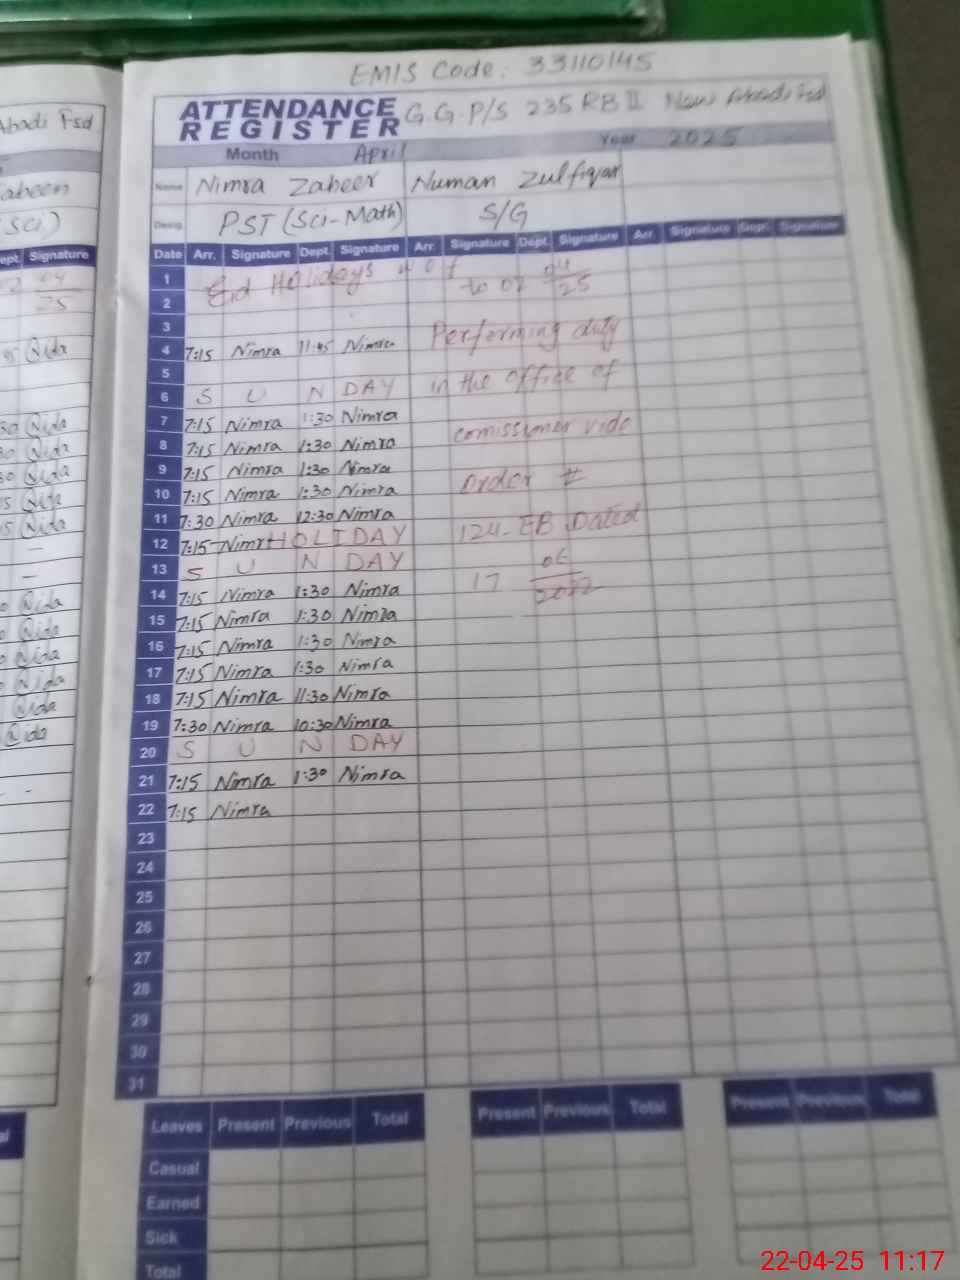 EMIS Code: 33110145
ATTENDANCE REGISTER G.G.P/S 235 RB II New Abadi Fsd
Year 2025
Month April
Name Nimra Zaheer Numan Zulfiqar
Desig. PST (Sci-Math) S/G
Date Arr. Signature Dept. Signature Arr. Signature Dept. Signature Arr. Signature Dept. Signature
1 Eid Holidays
2 to 07 04/25
3 Performing duty
4 7:15 Nimra 11:45 Nimra
5 in the office of
6 S U N DAY
7 7:15 Nimra 1:30 Nimra comissioner vide
8 7:15 Nimra 1:30 Nimra
9 7:15 Nimra 1:30 Nimra order #
10 7:15 Nimra 1:30 Nimra
11 7:30 Nimra 12:30 Nimra 124-EB Dated
12 7:15 Nimr HOLIDAY
13 S U N DAY 17 06/2022
14 7:15 Nimra 1:30 Nimra
15 7:15 Nimra 1:30 Nimra
16 7:15 Nimra 1:30 Nimra
17 7:15 Nimra 1:30 Nimra
18 7:15 Nimra 11:30 Nimra
19 7:30 Nimra 10:30 Nimra
20 S U N DAY
21 7:15 Nimra 1:30 Nimra
22 7:15 Nimra
23
24
25
26
27
28
29
30
31
Leaves Present Previous Total Present Previous Total Present Previous Total
Casual
Earned
Sick
Total
Abadi Fsd
(Sci)
Signature
04
25
Nida
Nida
Nida
Nida
Nida
Nida
Nida
Nida
Nida
Nida
Nida
Nida
22-04-25 11:17